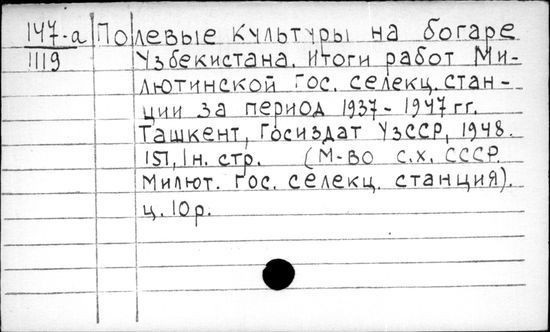 147-а Полевые культуры на богаре
1119 Узбекистана. Итоги работ Ми-
лютинской Гос. селекц. стан-
ции за период 1937-1947 гг.
Ташкент, Госиздат УзССР, 1948.
151, 1 н. стр. (М-во с.х. СССР
Милют. Гос. селекц. станция).
ц. 10 р.